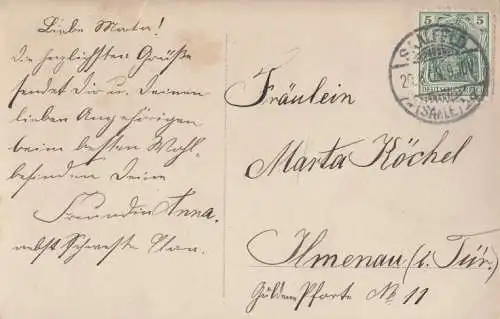 Liebe Marta!
Die herzlichsten Grüße
sendet dir u. Deinen
lieben Angehörigen
beim besten Wohl-
befinden Deine
Freundin Anna.
nebst Schwester
Fräulein
Marta Köchel
Ilmenau (i. Tür.)
Güldene Pforte No 11
5 5
SAALFELD
(SAALE)